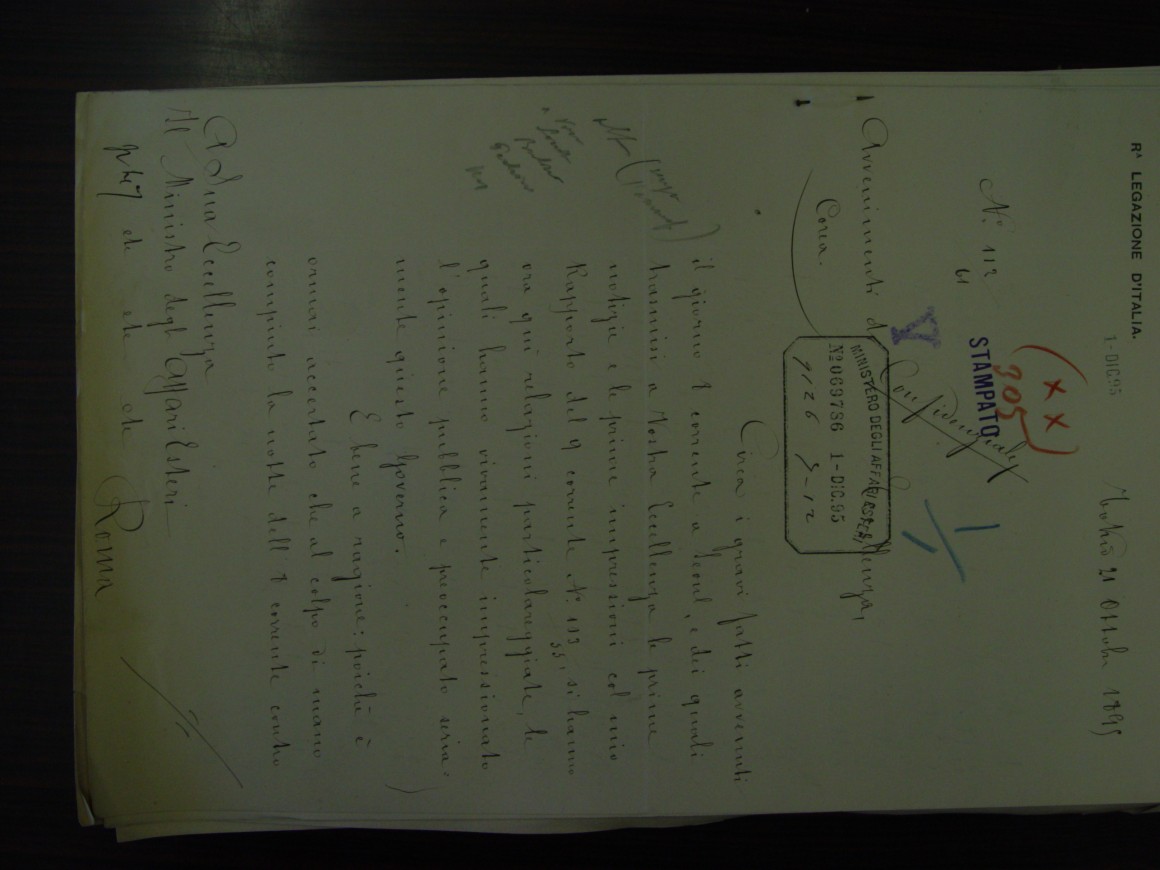 Rᴬ LEGAZIONE D'ITALIA.
1-DIC.95
Tokio 21 Ottobre 1895
(XX)
305
STAMPATO
N.º 112
61
Confidenziale
Avvenimenti di
Corea.
MINISTERO DEGLI AFFARI ESTERI
Nº069786 1-DIC.95
9126 3-12
Eccellenza,
Circa i gravi fatti avvenuti
il giorno 8 corrente a Seoul, e dei quali
trasmisi a Vostra Eccellenza le prime
notizie e le prime impressioni col mio
Rapporto del 9 corrente N.º 113/55, si hanno
ora qui relazioni particolareggiate, le
quali hanno vivamente impressionato
l'opinione pubblica e preoccupato seria-
mente questo Governo.
E bene a ragione; poichè è
ormai accertato che al colpo di mano
compiuto la notte dell'8 corrente contro
A Sua Eccellenza
Il Ministro degli Affari Esteri
etc etc etc Roma